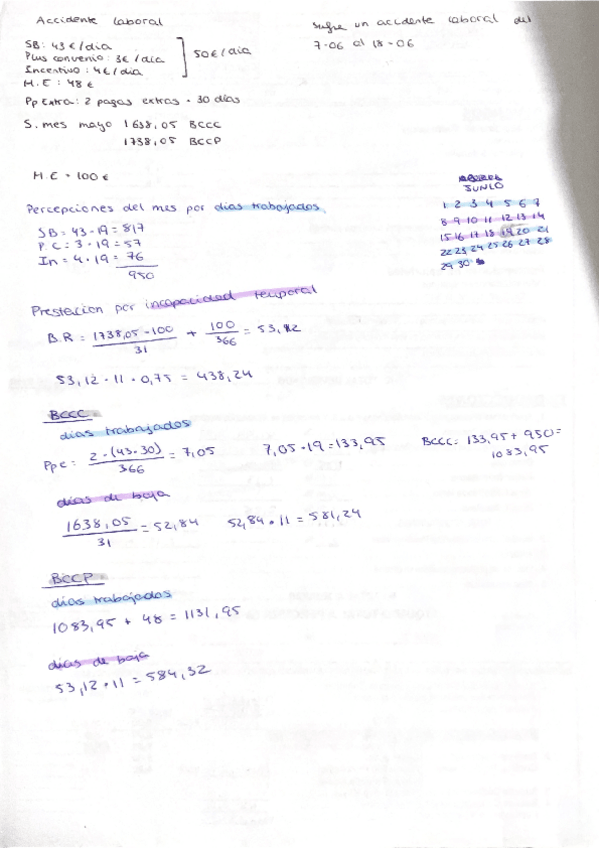 Accidente laboral
Sufre un accidente laboral del
7-06 al 18-06
SB: 43 €/dia
Plus convenio: 3€/dia
Incentivo: 4€/dia
50€/dia
H.E: 48 €
Pp Extra: 2 pagas extras · 30 días
S. mes mayo 1638,05 BCCC
1738,05 BCCP
H.E = 100€
JUNIO
1 2 3 4 5 6 7
8 9 10 11 12 13 14
15 16 17 18 19 20 21
22 23 24 25 26 27 28
29 30
Percepciones del mes por días trabajados
SB = 43·19 = 817
P.C = 3·19 = 57
In = 4·19 = 76
950
Prestacion por incapacidad temporal
B.R = 1738,05-100 / 31 + 100 / 366 = 53,12
53,12 · 11 · 0,75 = 438,24
BCCC
días trabajados
Ppe: 2·(43·30) / 366 = 7,05
7,05·19=133,95
BCCC: 133,95 + 950=
1083,95
días de baja
1638,05 / 31 = 52,84
52,84 · 11 = 581,24
BCCP
días trabajados
1083,95 + 48 = 1131,95
días de baja
53,12·11 = 584,32